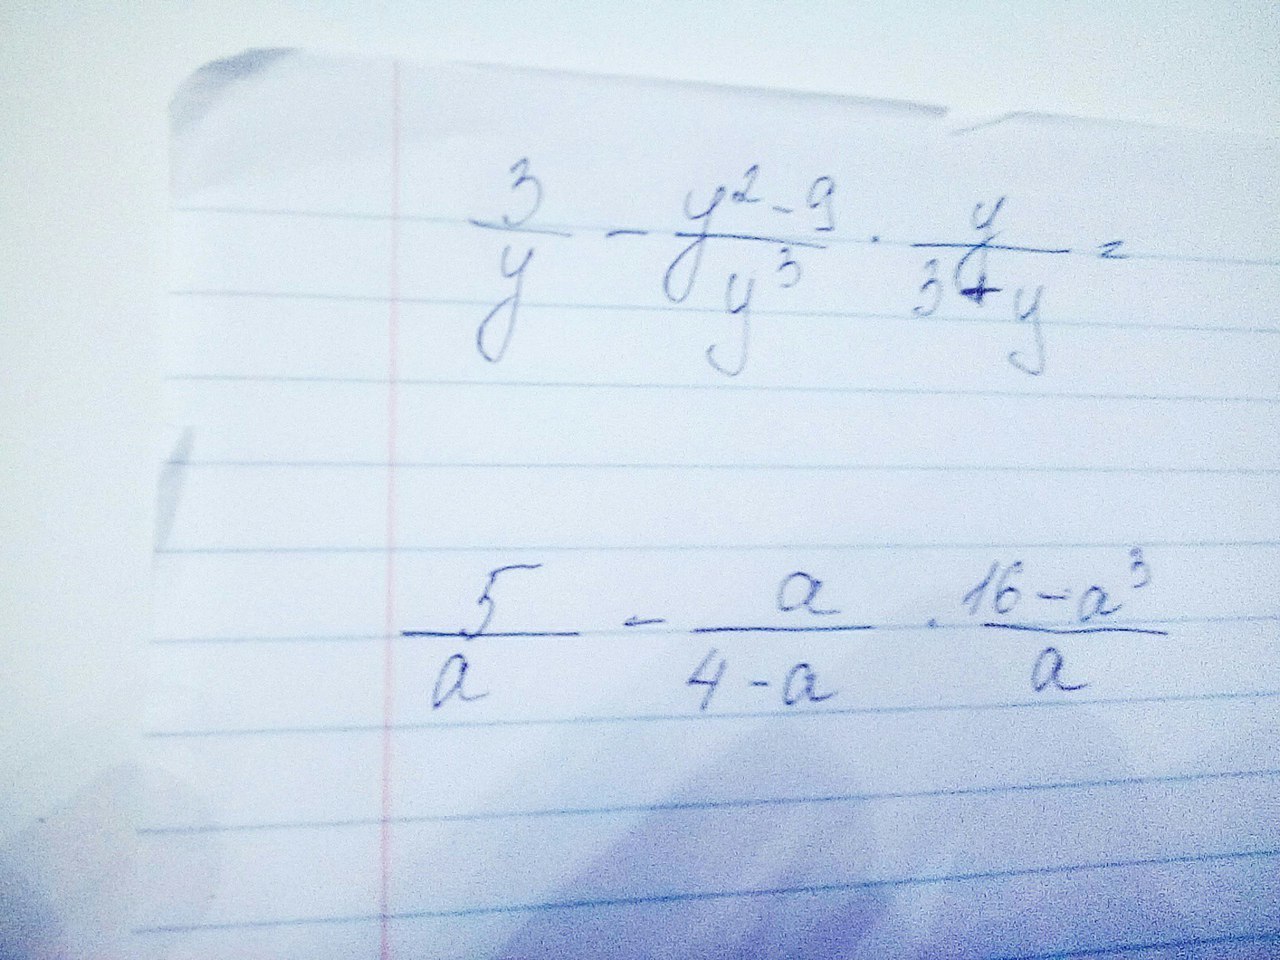 3/y - (y² - 9)/y³ · y/(3 + y) =
5/a - a/(4 - a) · (16 - a³)/a